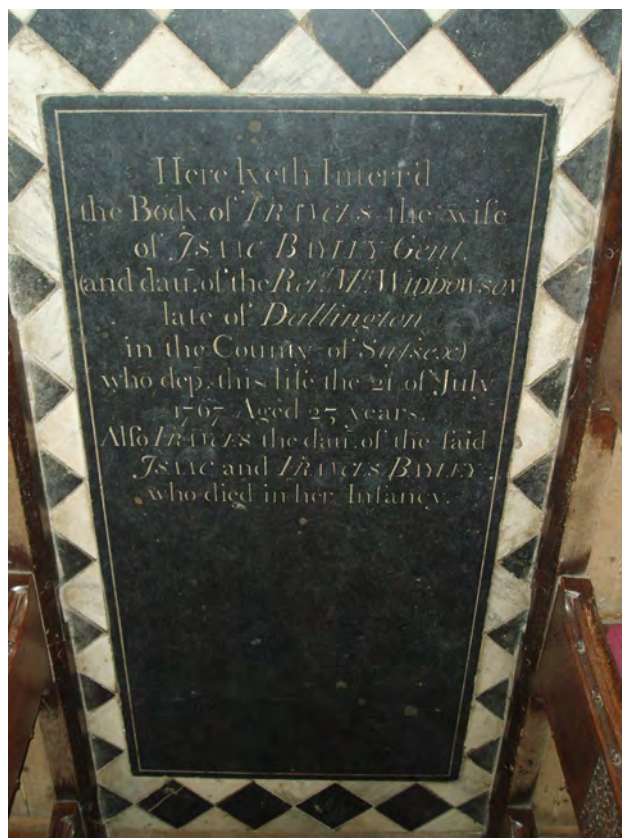 Here lyeth Interr'd
the Body of FRANCES the wife
of JSAAC BAYLEY Gent.
(and dau. of the Revd. Mr. WIDDOWSON
late of Dallington
in the County of Sussex)
who dep. this life the 21 of July
1767 Aged 23 years.
Alſo FRANCES the dau. of the ſaid
JSAAC and FRANCES BAYLEY
who died in her Infancy.